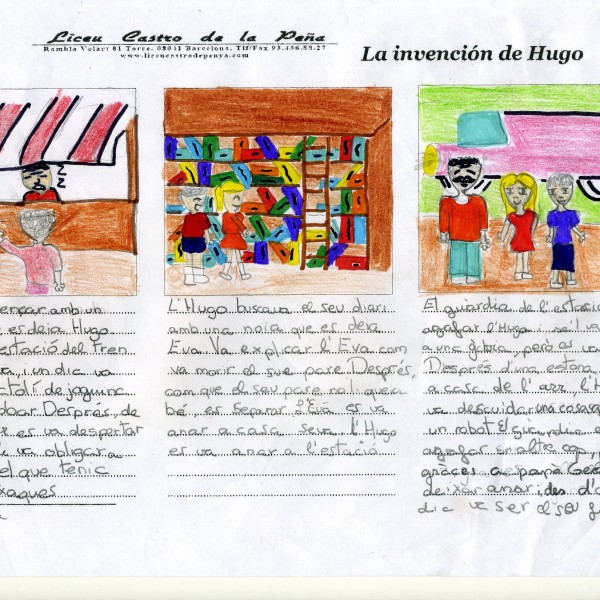 Liceu Castro de la Peña
Rambla Volart 81 Torre. 08041 Barcelona. Tlf/Fax 93.456.88.27
www.liceucastrodepenya.com
La invención de Hugo
ençar amb un
es deia Hugo
estació del tren
va, i un dia va
de
Despres, de
es va despertar
va obligar a
el que tenic
xaques
L'Hugo buscava el seu diari
amb una noia que es deia
Eva. Va explicar l'Eva com
va morir el sue pare. Després,
com que el seu pare no l queia
be, es separar. L'Eva es va
anar a casa seva i l'Hugo
es va anar a l'estació.
El guardia de l'estació
agafar l'Hugo i se'l va
a una gabia, però es va
Després d'una estona
a casa de l'avi, l'H
va descuidar una cosa
un robot. El guardia e
agafar un altre cop,
gràcies a papa Geo
deixar anar, i des d'a
dia va ser el seu f